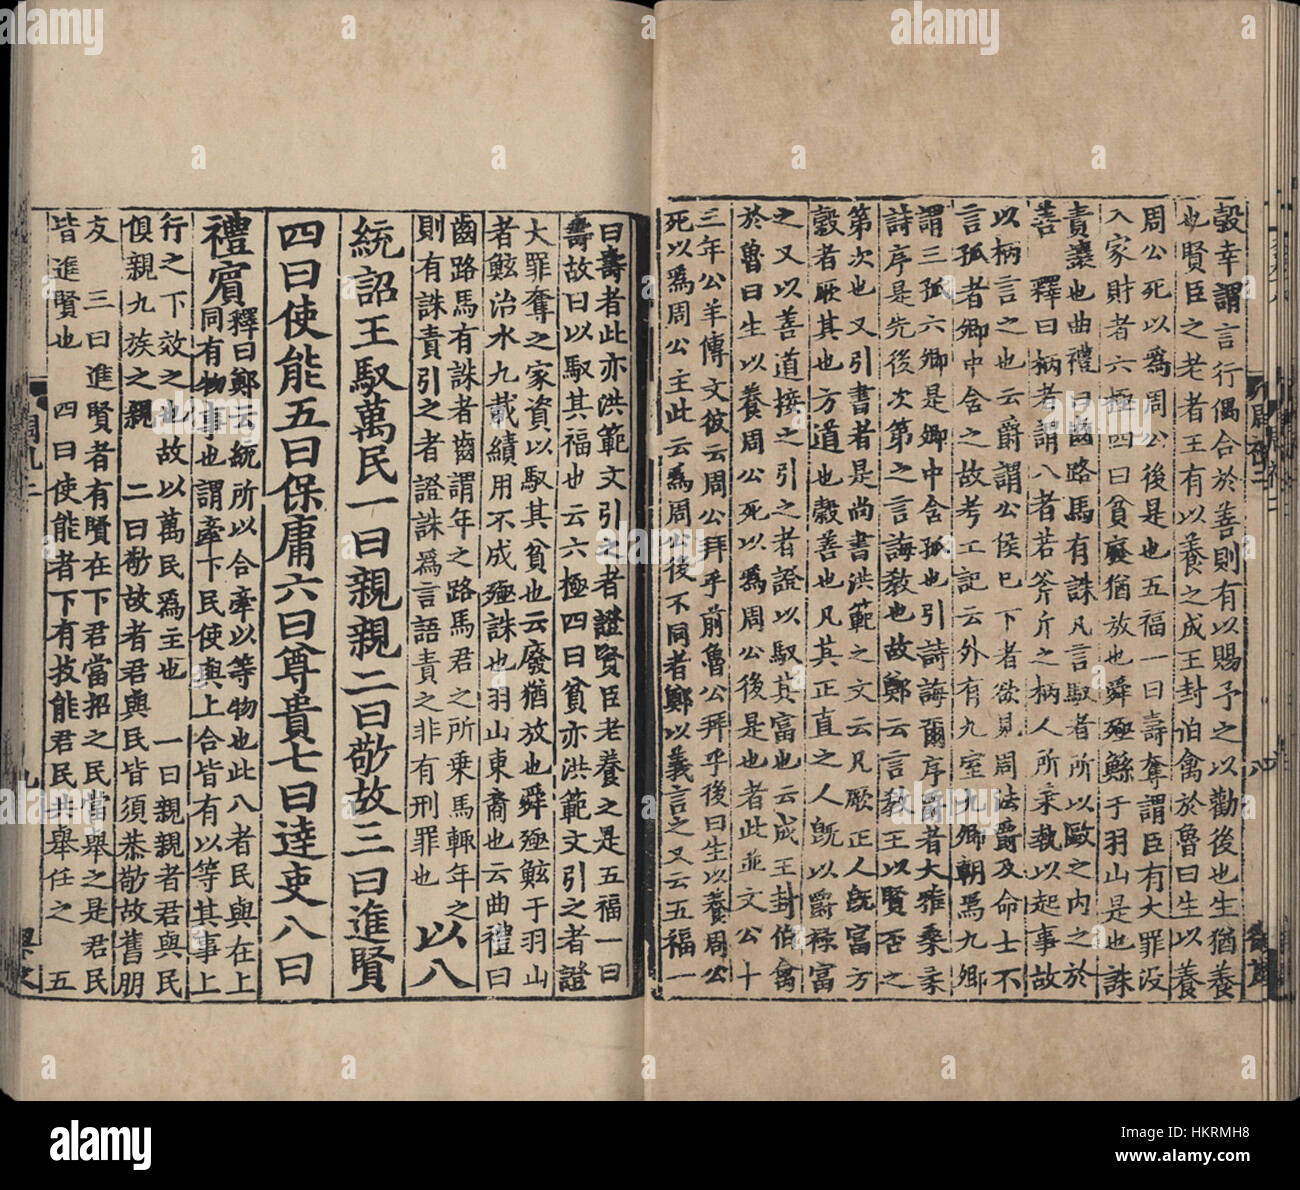 穀幸謂言行偶合於善則有以賜予之以勸後也生猶養
也賢臣之老者王有以養之成王封伯禽於魯曰生以養
周公死以爲周公後是也五福一曰壽奪謂臣有大罪没
入家財者六極四曰貧廢猶放也舜殛鯀于羽山是也誅
責讓也曲禮曰齒路馬有誅凡言馭者所以敺之内之於
善　釋曰柄者謂八者若斧斤之柄人所秉執以起事故
以柄言之也云爵謂公侯已下者欲見周法爵及命士不
言孤者卿中含之故考工記云外有九室九卿朝焉九卿
謂三孤六卿是卿中含孤也引詩誨爾序爵者大雅桑柔
詩序是先後次第之言誨教也故鄭云言教王以賢否之
第次也又引書者是尚書洪範之文云凡厥正人旣富方
穀者厥其也方道也穀善也凡其正直之人旣以爵祿富
之又以善道接之引之者證以馭其富也云成王封伯禽
於魯曰生以養周公死以爲周公後是也者此並文公十
三年公羊傳文彼云周公拜乎前魯公拜乎後曰生以養周公
死以爲周公主此云爲周公後不同者鄭以義言之又云五福一
曰壽者此亦洪範文引之者證賢臣老養之是五福一曰
壽故曰以馭其福也云六極四曰貧亦洪範文引之者證
大罪奪之家資以馭其貧也云廢猶放也舜殛鮌于羽山
者鮌治水九載績用不成殛誅也羽山東裔也云曲禮曰
齒路馬有誅者齒謂年之路馬君之所乗馬輒年之
則有誅責引之者證誅爲言語責之非有刑罪也　以八
統詔王馭萬民一曰親親二曰敬故三曰進賢
四曰使能五曰保庸六曰尊貴七曰達吏八曰
禮賔
釋曰鄭云統所以合牽以等物也此八者民與在上
同有物事也謂牽下民使與上合皆有以等其事上
行之下效之也故以萬民爲主也　一曰親親者君與民
俱親九族之親　二曰敬故者君與民皆須恭敬故舊朋
友　三曰進賢者有賢在下君當招之民當舉之是君民
皆進賢也　四曰使能者下有技能君民共舉任之　五
alamy stock photo
HKRMH8
www.alamy.com